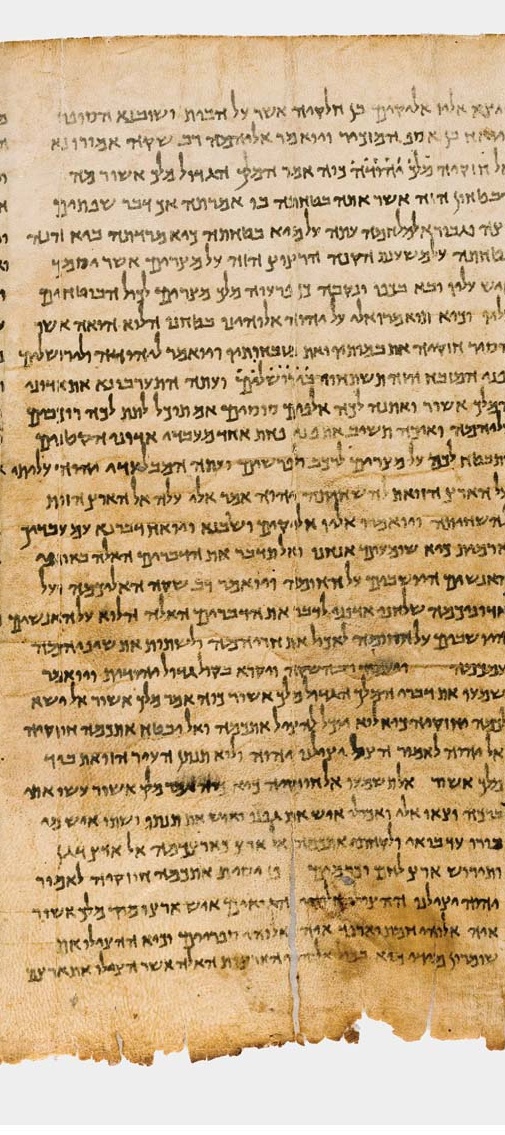 ויצא אליו אליקים בן חלקיה אשר על הבית ושובנא הסופר
ויואח בן אסף המזכיר ויואמר אליהמה רב שקה אמורו נא
אל חוזקיה מלך יהודה כוה אמר המלך הגדול מלך אשור מה
הבטחון הזה אשר אתה בטחתה בו אמרתה אך דבר שפתים
עצה וגבורא למלחמה עתה על מיא בטחתה כיא מרדתה ביא הנה
בטחתה על משענת הקנה הרצוץ הזה על מצרים אשר יסמך
איש עליו ובא בכפו ונקבה כן פרעוה מלך מצרים לכול הבוטחים
עליו וכיא תואמרו אלי על יהוה אלוהינו בטחנו הלוא הואה אשר
הסיר חוזקיה את במותיו ואת מזבחותיו ויואמר ליהודה ולירושלים
לפני המזבח הזה תשתחוו בירושלים ועתה התערבו נא את אדוני
המלך אשור ואתנה לכה אלפים סוסים אם תוכל לתת לכה רוכבים
עליהמה ואיכה תשיב את פני פחת אחד מעבדי אדוני הקטנים
ותבטח לכה על מצרים לרכב ולפרשים ועתה המבלעדי יהוה עליתי
על הארץ הזואת להשחיתה יהוה אמר אלי עלה אל הארץ הזות
להשחיתה ויואמרו אליו אליקים ושבנא ויואח דברנא עם עבדיך
ארמית כיא שומעים אנחנו ואל תדבר את הדברים האלה באוזני
האנשים היושבים על החומה ויואמר רב שקה האליכמה ועל
אדוניכמה שלחני אדוני לדבר את הדברים האלה הלוא על האנשים
היושבים על החומה לאכול את חריהמה ולשתות את שיניהמה
עמכמה ויעמוד רב שקה ויקרא בקול גדול יהודית ויואמר
שמעו את דברי המלך הגדול מלך אשור כוה אמר מלך אשור אל ישא
לכמה חוזקיה כיא לוא יוכל להציל אתכמה ואל יבטח אתכמה חווקיה
אל יהוה לאמור הצל יצילנו יהוה ולוא תנתן העיר הזואת ביד
מלך אשור אל תשמעו אל חוזקיה כיא כוה אמר מלך אשור עשו אתי
ברכה וצאו אלי ואכלו איש את גפנו ואיש את תנתו ושתו איש מי
בורו עד בואי ולקחתי אתכמה אל ארץ כארצכמה אל ארץ דגן
ותירוש ארץ לחם וכרמים פן יסית אתכמה חווקיה לאמור
יהוה יצילנו ההצילו אלוהי איש ארצו מיד מלך אשור
איה אלוהי חמת וארפד איה אלוהי ספריים וכיא ההצילו את
שומרון מידי מיא בכול אלוהי הארצות האלה אשר הצילו את ארצם